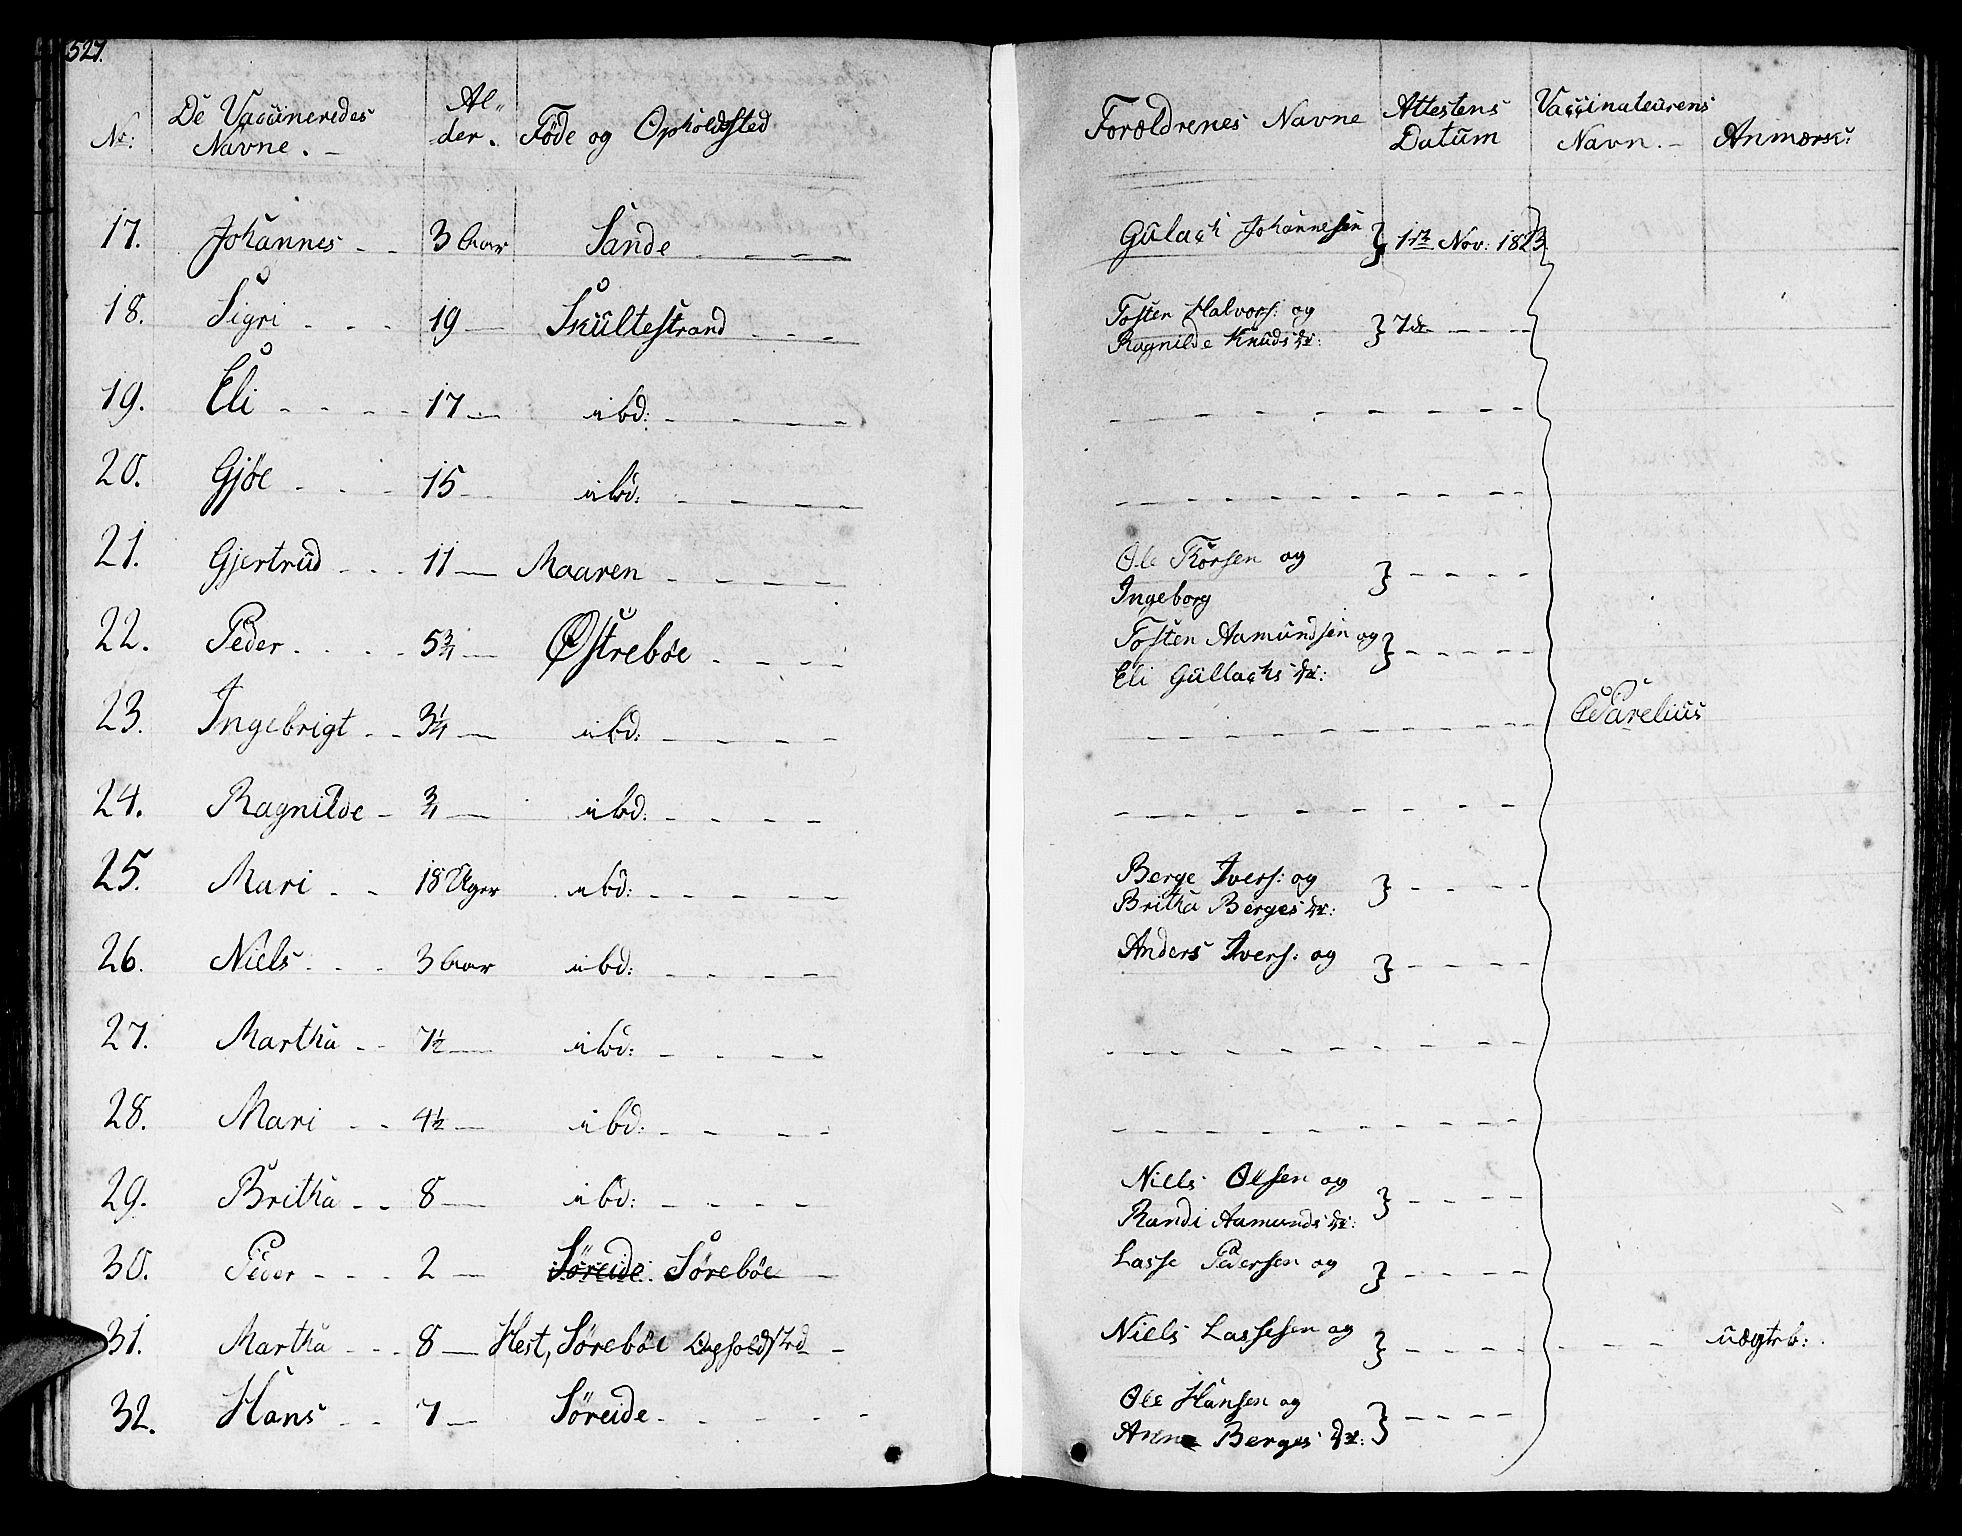 527.
No: De Vaccineredes Navne. – Al-der. Føde og Opholdssted Forældrenes Navne Attestens Datum Vaccinateurens Navn. – Anmærk:
17. Johannes - - 3 Aar Sande - - - - Gulach Johannesen } 1ste Nov: 1823.
18. Sigri - - - 19 — Skultestrand - - - Tosten Halvors: og } 7de - - -
Ragnilde Knuds dr:
19. Eli - - - - 17 — ibd: - - - - - - - - - - - -
20. Gjøe - - - 15 — ibd: - - - - - - - - - - - -
21. Gjertrud - - - 11 — Maaren - - - - Ole Thorsen og } - - - -
Ingeborg
22. Peder - - - - 5 3/4 — Østrebøe - - - - Tosten Aamundsen og } - - - - -
Eli Gullachs dr:
23. Ingebrigt - - 3 1/4 — ibd: - - - - - - - - - - - - Parelius
24. Ragnilde - 3/4 — ibd: - - - - - - - - - - - -
25. Mari - - 18 Uger ibd: - - - - Berge Ivers: og } - - - -
Britha Berges dr:
26. Niels - - - 3 Aar ibd: - - - - Anders Ivers: og } - - - -
27. Martha - - 7 1/2 — ibd: - - - - - - - - - - - -
28. Mari - - 4 1/2 — ibd: - - - - - - - - - - - -
29. Britha - - 8 — ibd: - - - - Niels Olsen og } - - - -
Randi Aamunds dr:
30. Peder - - - 2 — Søreide. Sørebøe — Lasse Pedersen og } - - - -
31. Martha - - - 8 — Hest, Sørebøe Opholdsted - Niels Lassesen og } - - - - - - - udgtrb:
32. Hans - - 7 — Søreide - - - - Ole Hansen og } - - - -
Anne Berges dr: